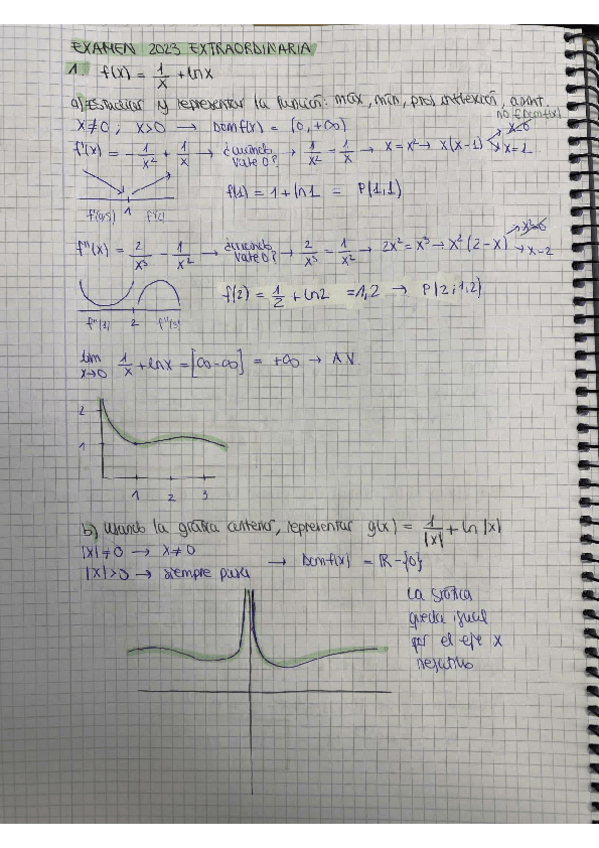 EXAMEN 2023 EXTRAORDINARIA
1. f(x) = 1/x + lnx
a) Estudiar y representar la función: max, min, ptos inflexión, asint.
x≠0 ; x>0 → Domf(x) = (0, +∞)
no ∈ Domf(x)
f'(x) = -1/x² + 1/x → ¿cuándo vale 0? → 1/x² = 1/x → x = x² → x(x-1) → x=0 → x=1
f(1) = 1 + ln1 = P(1,1)
1
f''(x) = 2/x³ - 1/x² → ¿cuándo vale 0? → 2/x³ = 1/x² → 2x² = x³ → x²(2-x) → x=0 → x=2
f(2) = 1/2 + ln2 = 1,2 → P(2;1,2)
f''(1) 2 f''(3)
lim x→0 1/x + lnx = [∞-∞] = +∞ → A.V.
2
1
1 2 3
b) Usando la gráfica anterior, representar g(x) = 1/|x| + ln|x|
|x|≠0 → x≠0
|x|>0 → siempre pasa
→ Domf(x) = ℝ - {0}
La gráfica
queda igual
por el eje x
negativo